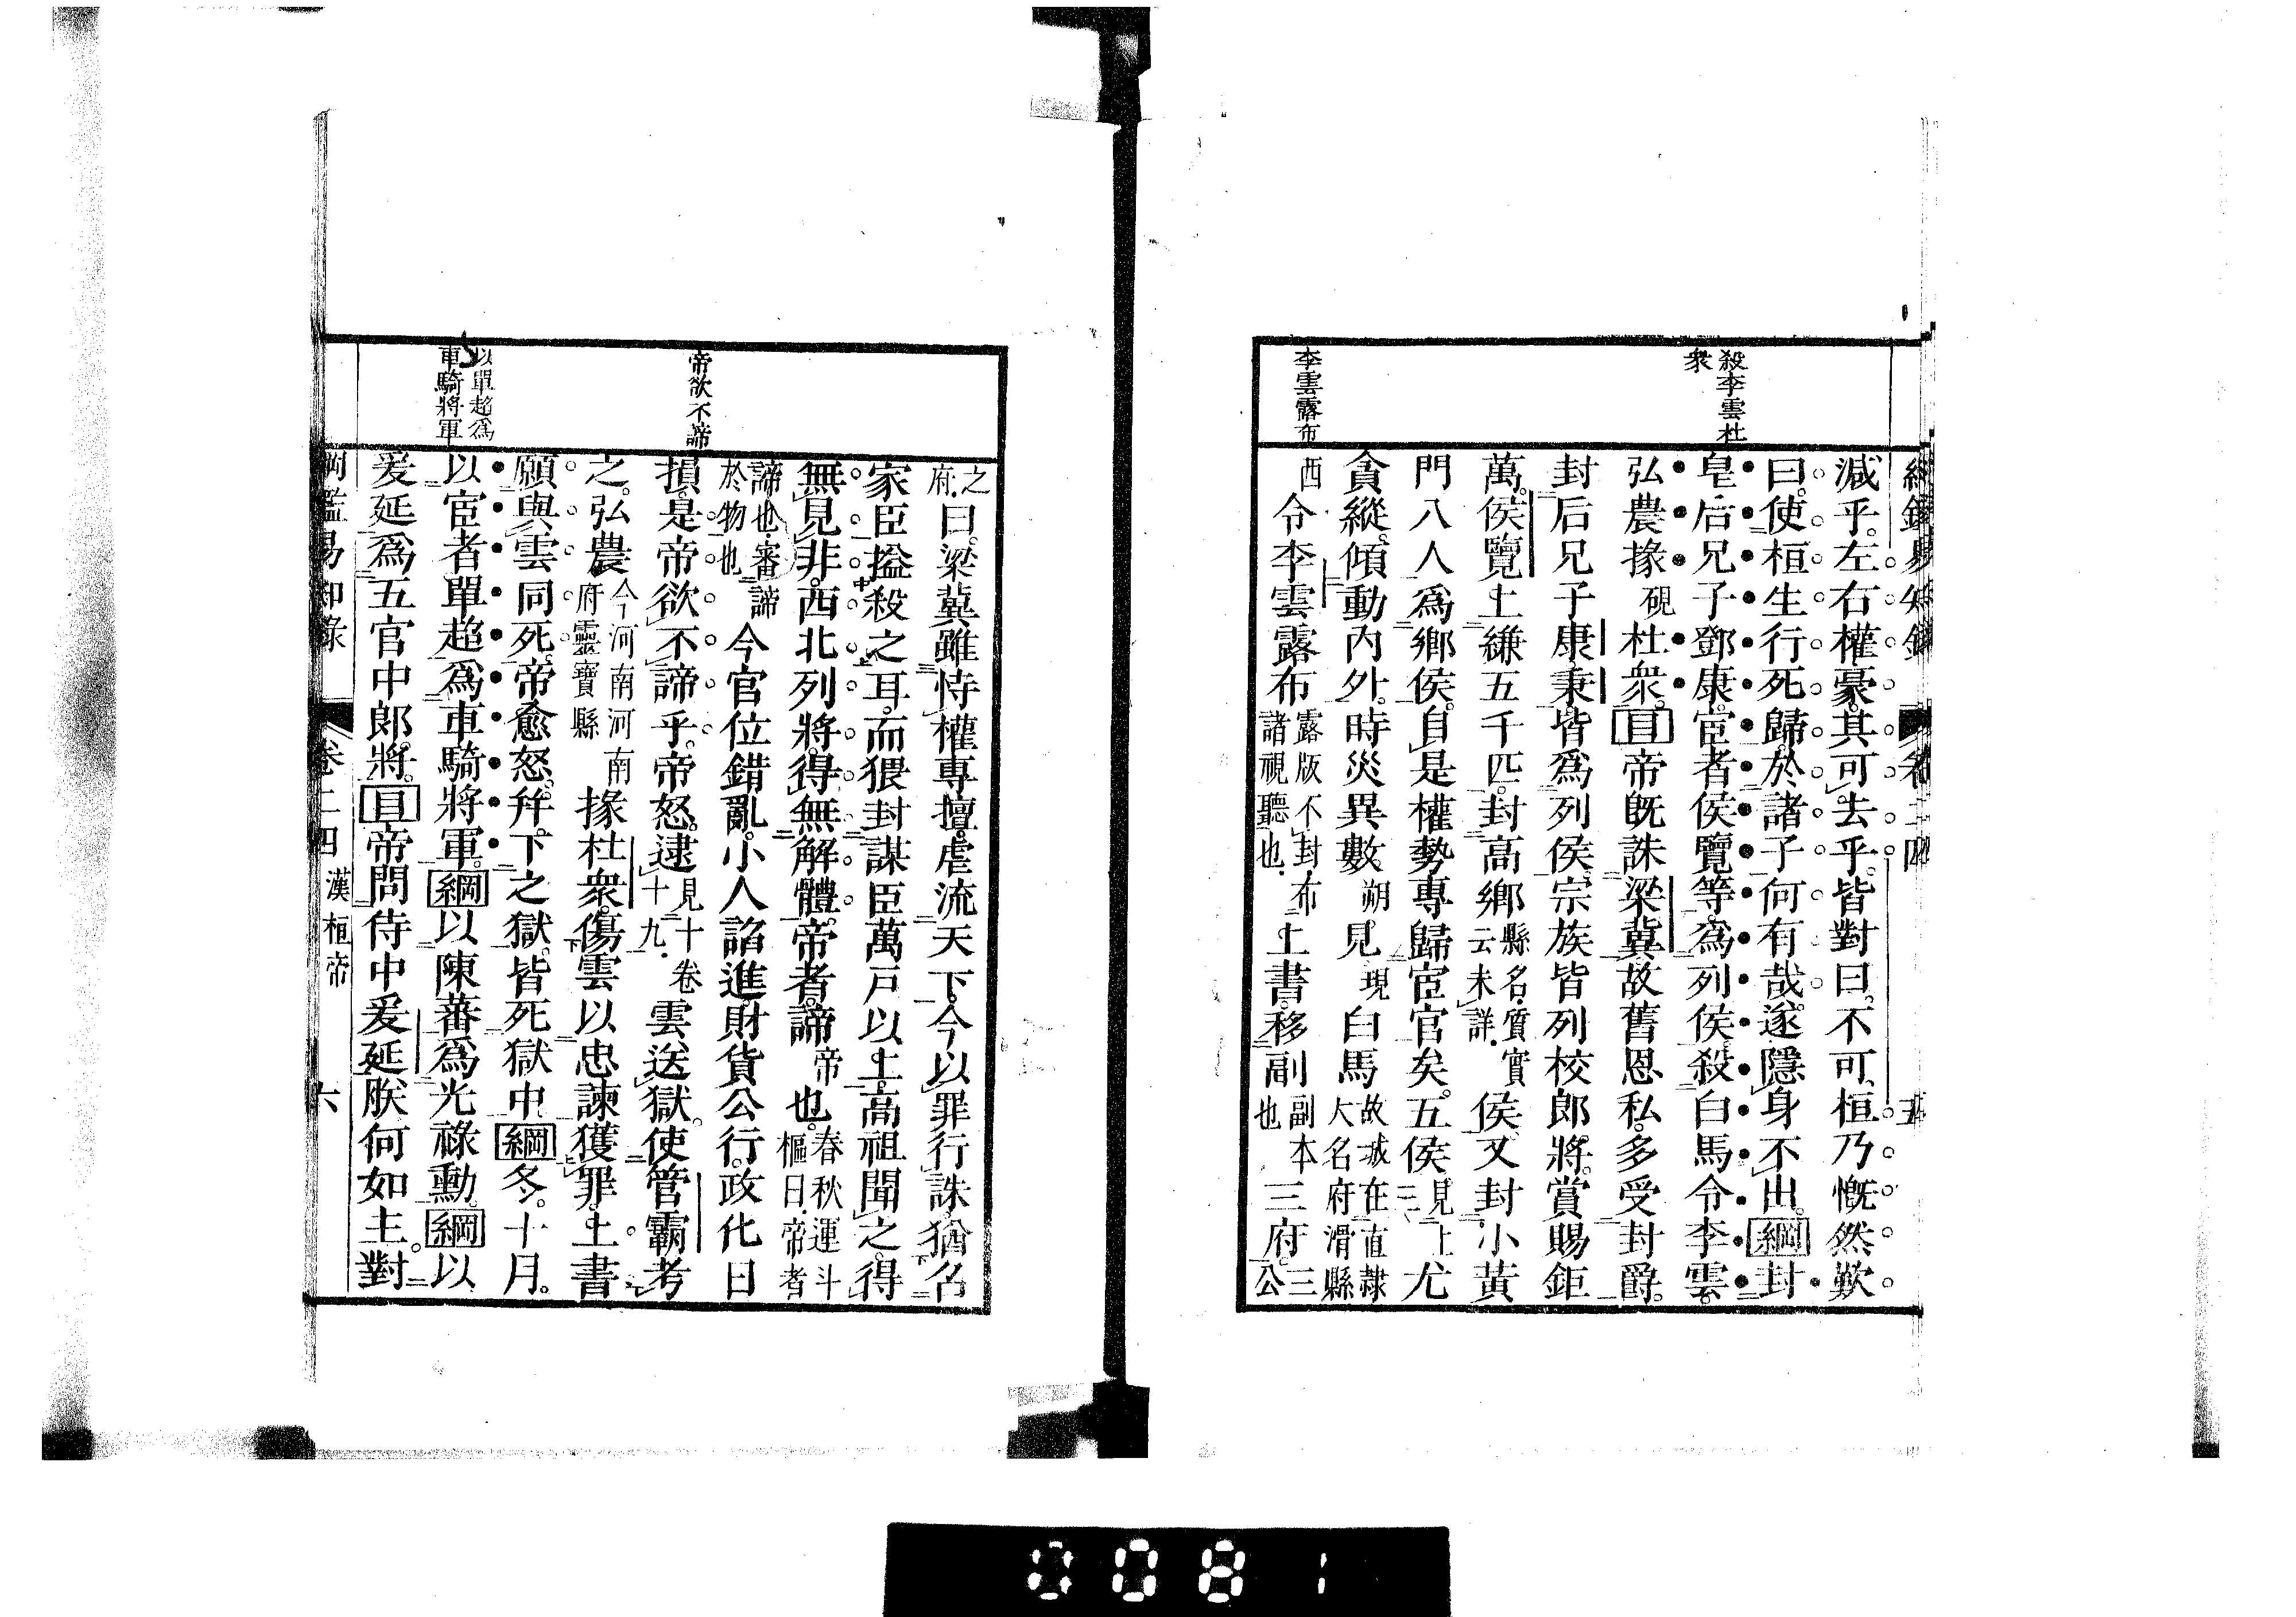 綱鑑易知錄 卷二四 五
殺李雲杜
衆
李雲露布
減乎。左右權豪。其可去乎。皆對曰。不可。桓乃慨然歎
曰。使桓生行死歸。於諸子何有哉。遂隱身不出。綱封
皇后兄子鄧康。宦者侯覽等。爲列侯。殺白馬令李雲。
弘農掾硯杜衆。目帝既誅梁冀。故舊恩私。多受封爵。
封后兄子康秉。皆爲列侯。宗族皆列校郎將。賞賜鉅
萬。侯覽上縑五千匹。封高鄉縣名。質實云未詳。侯。又封小黃
門八人爲鄉侯。自是權勢專歸宦官矣。五侯見上二。尤
貪縱。傾動內外。時災異數朔。見現白馬故城在直隸大名府滑縣
西令李雲露布露版不封。布諸視聽也。上書。移副副本也三府。三公
帝欲不諦
以單超爲
車騎將軍
之府。曰。梁冀雖恃權專擅。虐流天下。今以罪行誅。猶名
家臣搤殺之耳。而猥封謀臣萬戶以上。高祖聞之。得
無見非。西北列將。得無解體。帝者。諦帝也。春秋運斗樞曰。帝者
諦也。審諦於物也今官位錯亂。小人諂進。財貨公行。政化日
損。是帝欲不諦乎。帝怒。逮見十卷十九。雲。送獄。使管霸考
之。弘農今河南河南府靈寶縣掾杜衆。傷雲以忠諫獲罪。上書
願與雲同死。帝愈怒。幷下之獄。皆死獄中。綱冬。十月。
以宦者單超爲車騎將軍。綱以陳蕃爲光祿勳。綱以
爰延爲五官中郎將。目帝問侍中爰延。朕何如主。對
綱鑑易知錄 卷二四 漢桓帝 六
0081